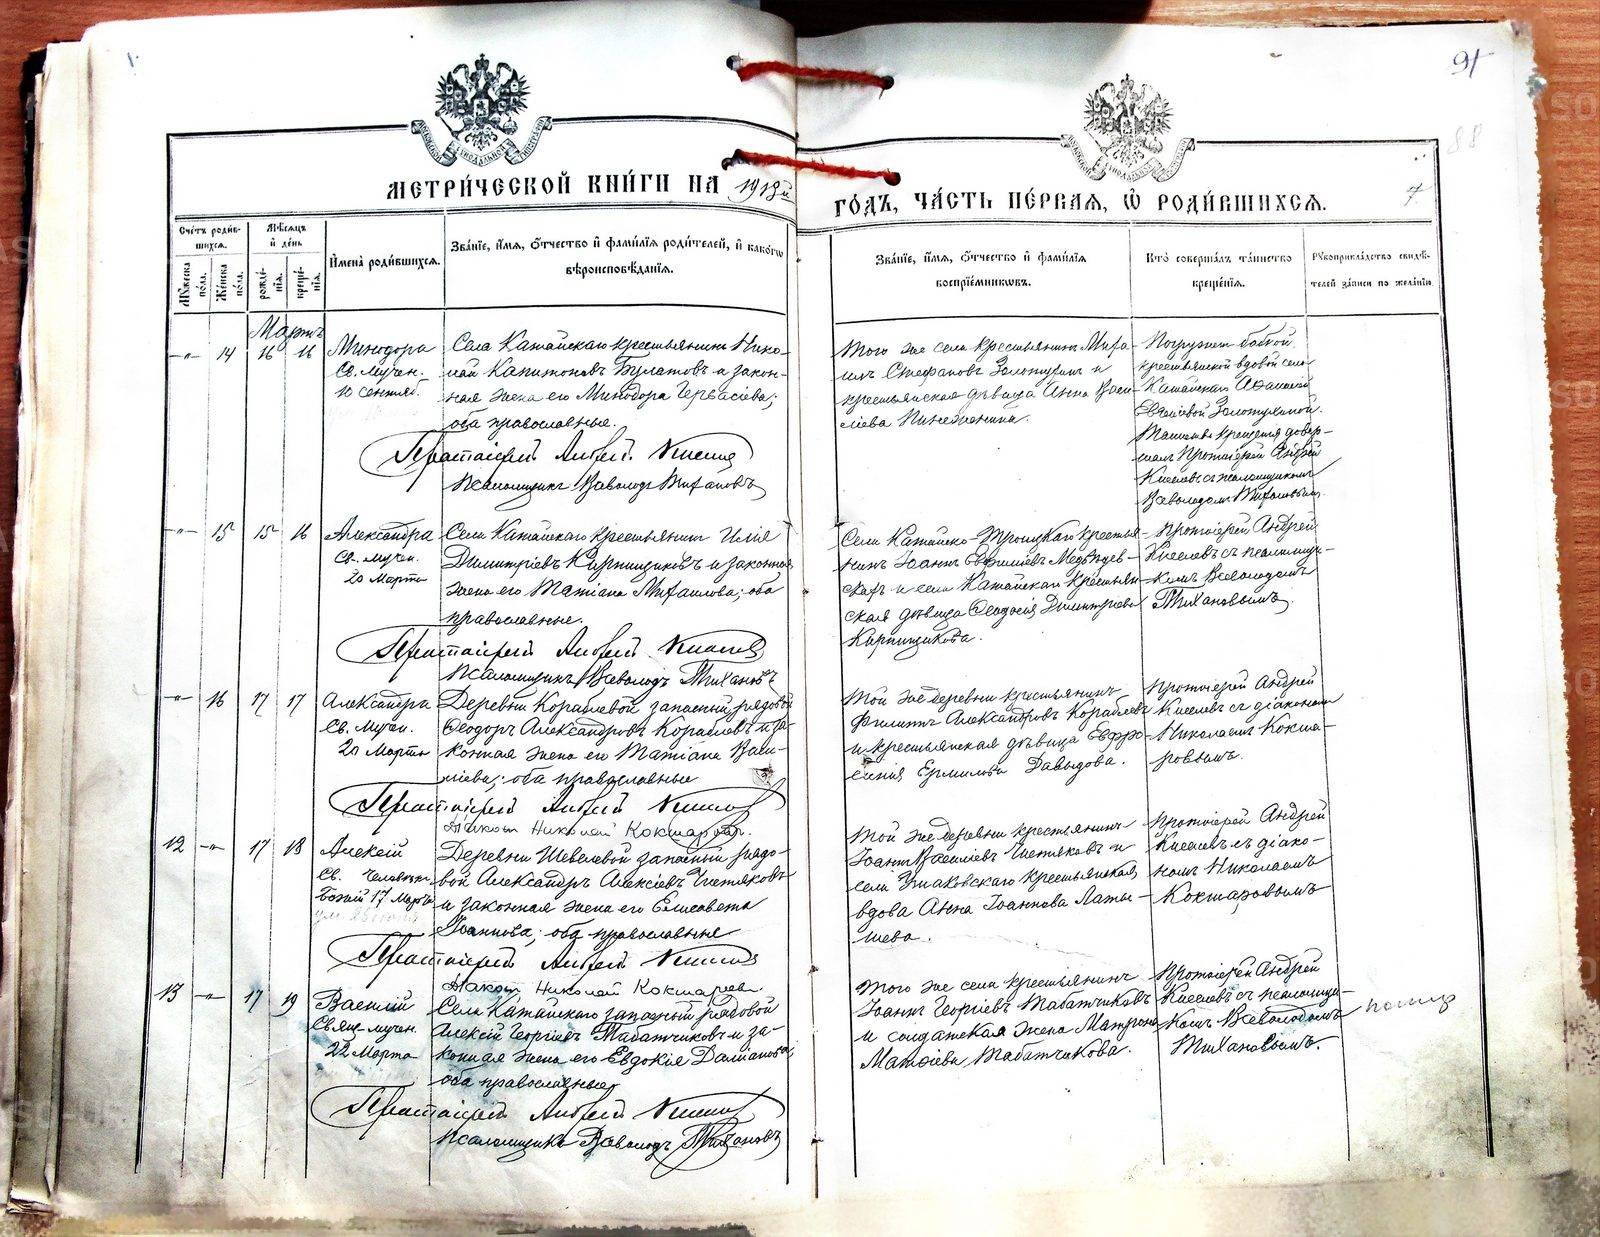 91
88
МОСКОВСКОЙ СѴНОДАЛЬНОЙ ТИПОГРАФІИ
МОСКОВСКОЙ СѴНОДАЛЬНОЙ ТИПОГРАФІИ
МЕТРИ́ЧЕСКОЙ КНИ́ГИ НА 1913й
ГО́ДЪ, ЧА́СТЬ ПЕ́РВАЯ, Ѡ҆ РОДИ́ВШИХСЯ.
7
Сче́тъ роди́в-
шихся.
Мꙋ́жеска по́ла.
Же́нска по́ла.
Мѣ́сяцъ
и҆ де́нь
рожде́-
нїѧ.
креще́-
нїѧ.
И҆мена̀ роди́вшихся.
Зва́нїе, и҆́мя, ѻ҆́тчество и҆ фами́лїя роди́телей, и҆ како́гѡ
вѣроисповѣ́данїѧ.
Зва́нїе, и҆́мя, ѻ҆́тчество и҆ фами́лїя
воспрїе́мникѡвъ.
Кто̀ соверша́лъ та́инство
креще́нїѧ.
Рꙋкоприкла́дство свидѣ́-
телей за́писи по жела́нїю.
Мартъ
-„- 14 16 16
Минодора
Св. мучен.
10 сентяб.
Села Катайскаго крестьянинъ Нико-
лай Капитоновъ Булатовъ и закон-
ная жена его Минодора Гервасіева;
оба православные.
Протоіерей Андрей Киселев
Псаломщикъ Всеволодъ Тихановъ
Того же села крестьянинъ Миха-
илъ Стефановъ Золотухинъ и
крестьянская дѣвица Анна Васи-
ліева
Погружен бабкой
крестьянской вдовой села
Катайскаго
Золотухиной.
Таинство крещенія довер-
шалъ Протоіерей Андрей
Киселевъ съ псаломщикомъ
Всеволодомъ Тихановымъ
-„- 15 15 16
Александра
Св. мучен.
20 Марта
Села Катайскаго крестьянинъ Илія
Димитріевъ Кирпищиковъ и законная
жена его Татіана Михаилова; оба
православные.
Протоіерей Андрей Киселев
Псаломщикъ Всеволодъ Тихановъ
Села Катайско-Троицкаго крестья-
нинъ Іоаннъ Евфиміевъ Медвѣдев-
скихъ и села Катайскаго крестьян-
ская дѣвица Ѳеодосія Димитріева
Кирпищикова.
Протоіерей Андрей
Киселевъ съ псаломщи-
комъ Всеволодомъ
Тихановымъ
-„- 16 17 17
Александра
Св. мучен.
20 Марта
Деревни Кораблевой запасный рядовой
Ѳеодоръ Александровъ Кораблевъ и за-
конная жена его Татіана Васи-
ліева; оба православные
Протоіерей Андрей Киселев
Діаконъ Николай Кокшаров.
Той же деревни крестьянинъ
Филиппъ Александровъ Кораблевъ
и крестьянская дѣвица Евфро-
синія Ермилова Давыдова.
Протоіерей Андрей
Киселевъ съ діакономъ
Николаемъ Кокша-
ровымъ.
12 -„- 17 18
Алексій
Св. Человѣкъ
Божій 17 Марта
Деревни Шевелевой запасный рядо-
вой Александръ Алексіевъ Чистяковъ
и законная жена его Елисавета
Іоаннова; оба православные
Протоіерей Андрей Киселев
Діаконъ Николай Кокшаров
Той же деревни крестьянинъ
Іоаннъ Василіевъ Чистяковъ и
села Ушаковскаго крестьянская
вдова Анна Іоаннова Латы-
шева.
Протоіерей Андрей
Киселевъ съ діако-
номъ Николаемъ
Кокшаровымъ
13 -„- 17 19
Василій
Свящ. мучен.
22 Марта
Села Катайскаго запасный рядовой
Алексій Георгіевъ Табатчиковъ и за-
конная жена его Евдокія Даміанова;
оба православные
Протоіерей Андрей Киселев
Псаломщикъ Всеволодъ Тихановъ
Того же села крестьянинъ
Іоаннъ Георгіевъ Табатчиковъ
и солдатская жена Матрона
Матѳіева Табатчикова.
Протоіерей Андрей
Киселевъ съ псаломщи-
комъ Всеволодомъ
Тихановымъ.